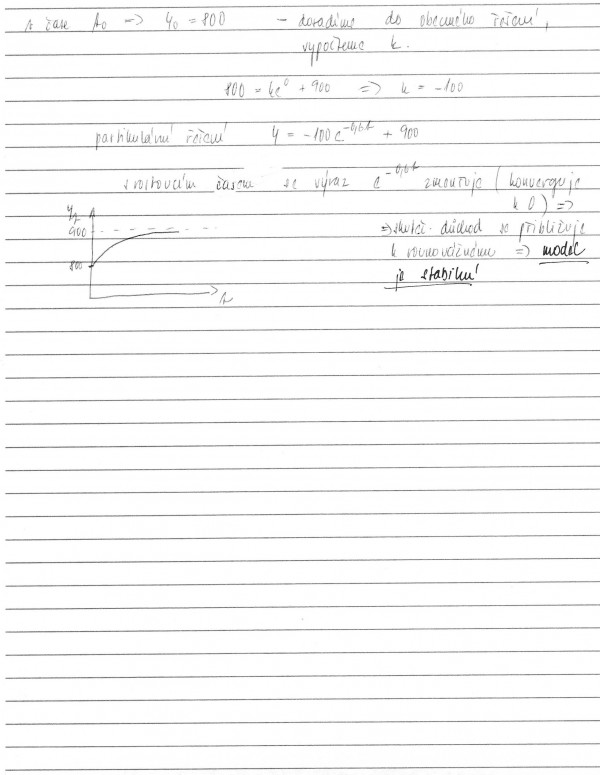 v čase t₀ => y₀ = 800 - dosadíme do obecného řešení,
vypočteme k.
800 = ke⁰ + 900 => k = -100
partikulární řešení y = -100e^-0,6t + 900
s rostoucím časem se výraz e^-0,6t zmenšuje (konverguje
k 0) =>
=> skuteč. důchod se přibližuje
k rovnovážnému => model
je stabilní
yt
900
800
t